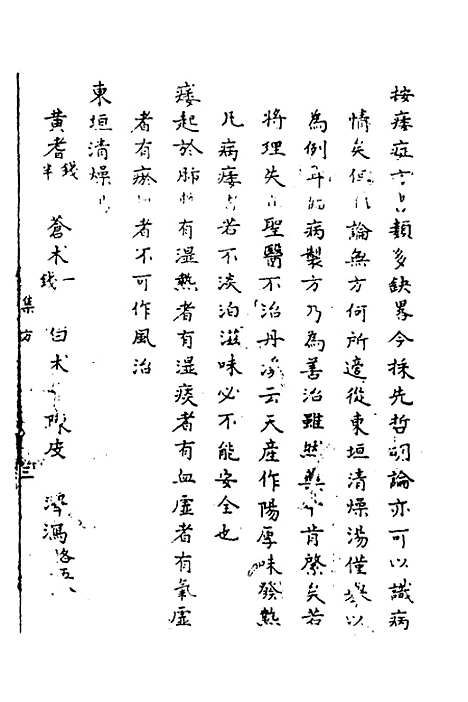 按痿症古今類多缺畧今採先哲明論亦可以識病
情矣但論無方何所適從東垣清燥湯僅以
為例耳病製方乃為善治雖然肯綮矣若
將理失聖醫不治丹溪云天產作陽厚味發熱
凡病痿者若不淡泊滋味必不能安全也
痿起於肺有濕熱者有濕痰者有血虛者有氣虛
者有瘀者不可作風治
東垣清燥
黃耆錢半 蒼术一錢 白术 陳皮 澤瀉各五
集方 三